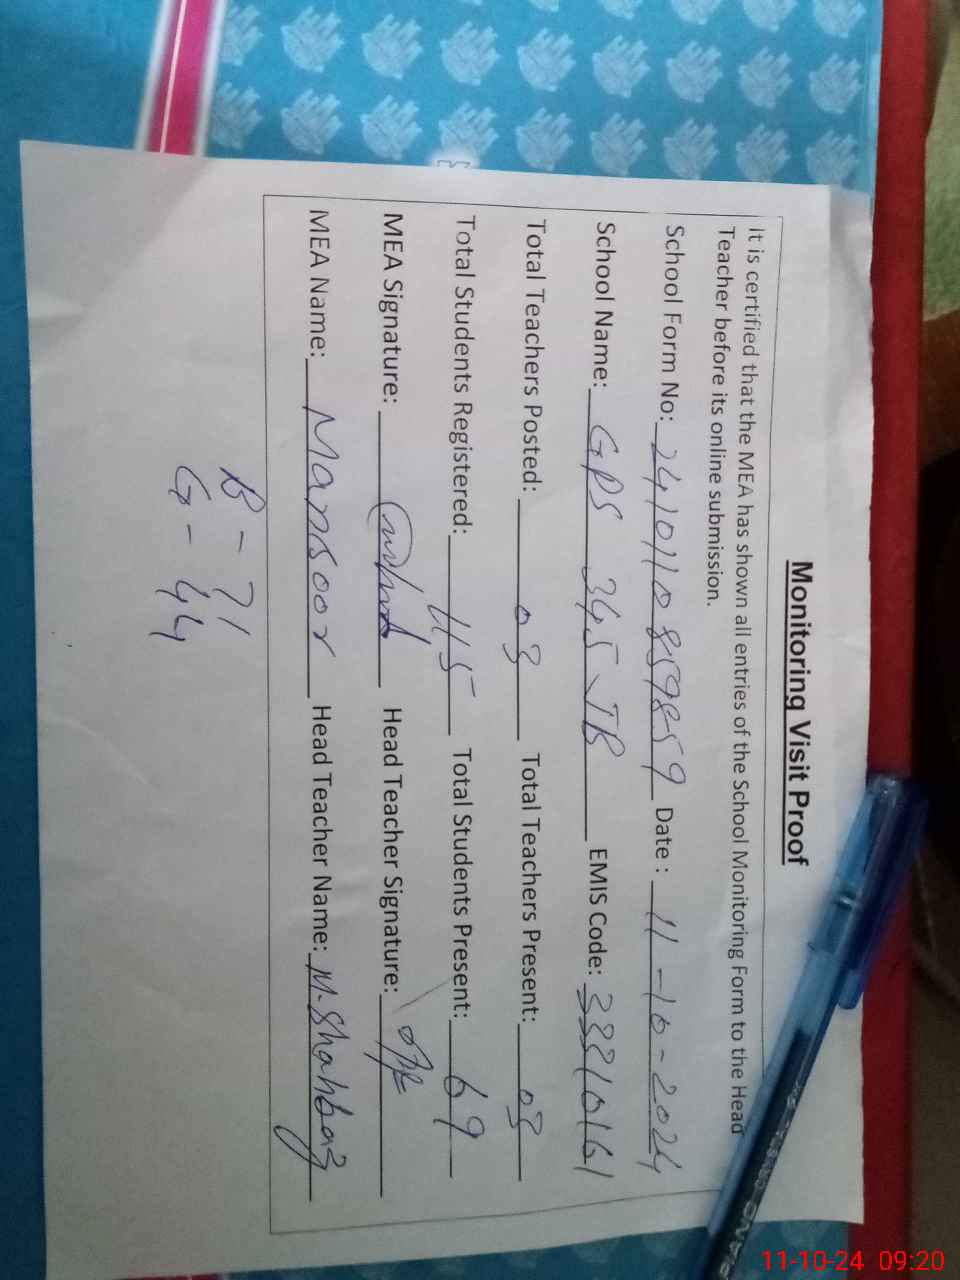 Monitoring Visit Proof
It is certified that the MEA has shown all entries of the School Monitoring Form to the Head
Teacher before its online submission.
School Form No: 2410110859859 Date : 11-10-2024
School Name: GPS 345 JB EMIS Code: 33210161
Total Teachers Posted: 03 Total Teachers Present: 03
Total Students Registered: 115 Total Students Present: 69
MEA Signature: Head Teacher Signature:
MEA Name: Mansoor Head Teacher Name: M. Shahbaz
B - 71
G - 44
11-10-24 09:20